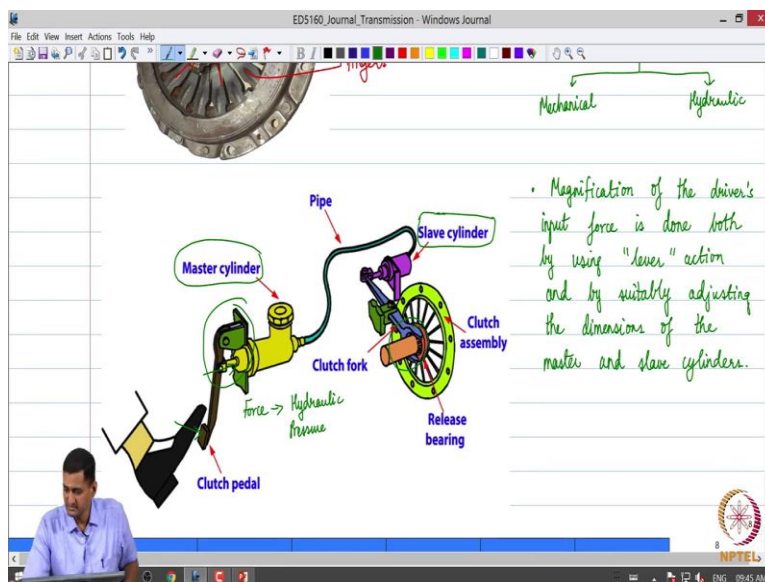 ED5160_Journal_Transmission - Windows Journal
File Edit View Insert Actions Tools Help
B I
Fingers
Mechanical
Hydraulic
Pipe
Slave cylinder
Master cylinder
Clutch fork
Clutch assembly
Release bearing
Clutch pedal
Force → Hydraulic
Pressure
• Magnification of the driver's
input force is done both
by using "lever" action
and by suitably adjusting
the dimensions of the
master and slave cylinders.
8
8
NPTEL
ENG 09:45 AM